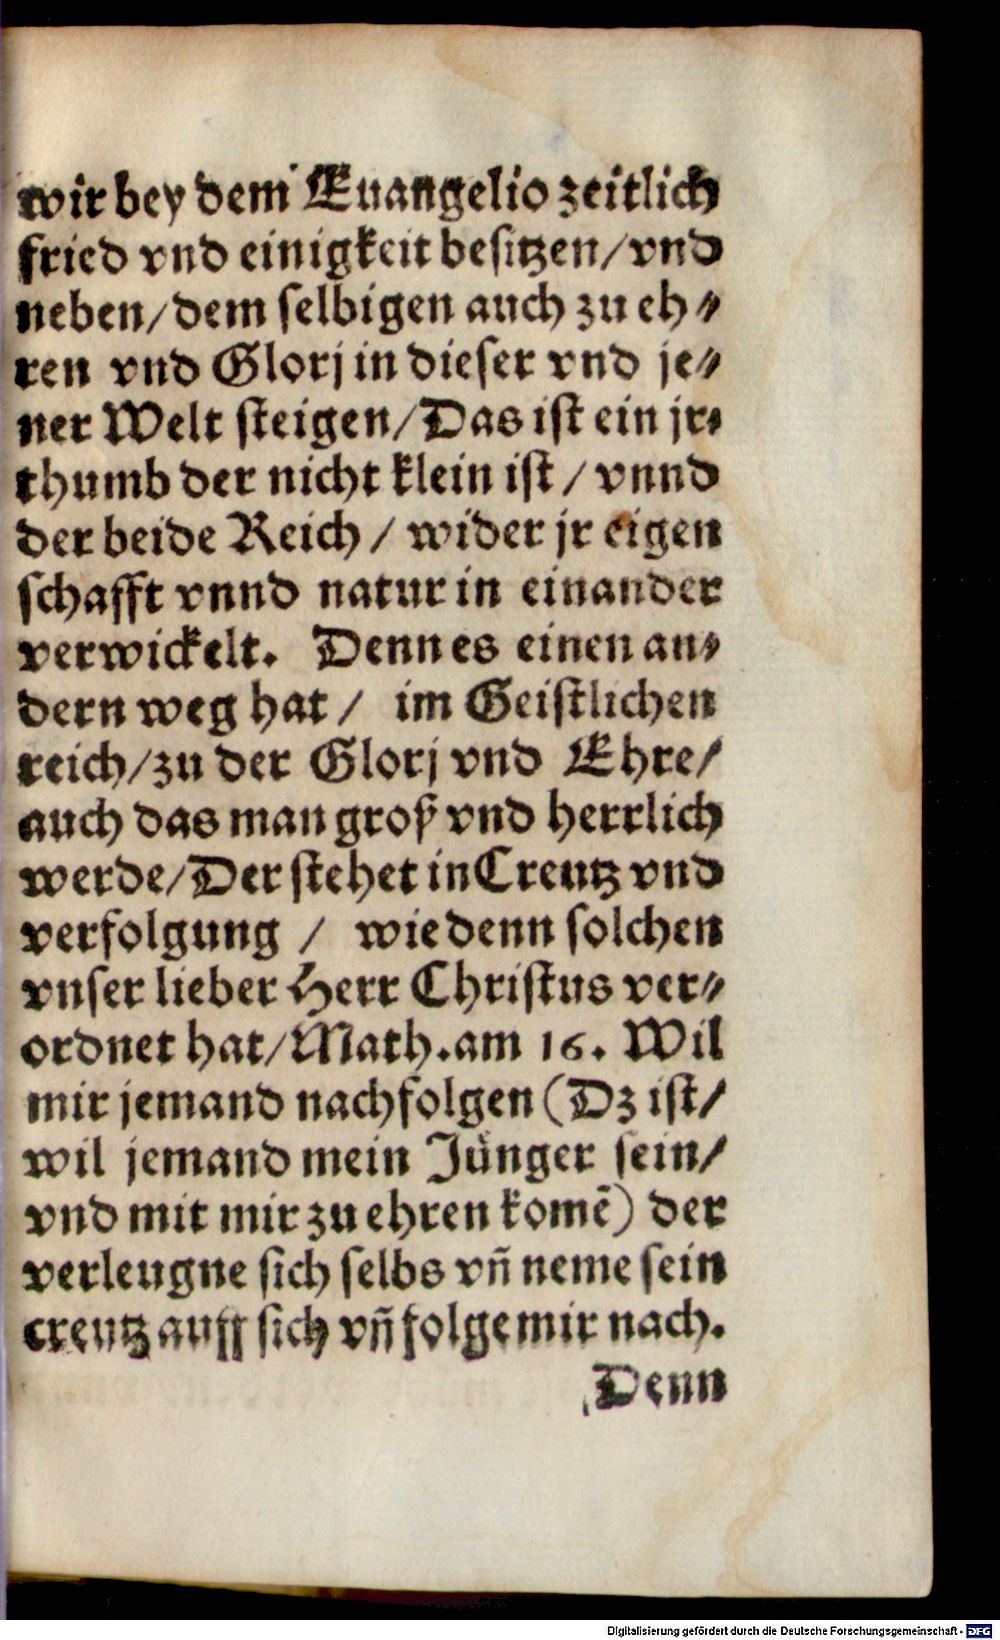 wir bey dem Euangelio zeitlich
fried vnd einigkeit besitzen/vnd
neben/dem selbigen auch zu eh⸗
ren vnd Glorj in dieser vnd je⸗
ner Welt steigen/Das ist ein jr⸗
thumb der nicht klein ist/vnnd
der beide Reich/wider jr eigen
schafft vnnd natur in einander
verwickelt. Denn es einen an⸗
dern weg hat/ im Geistlichen
reich/zu der Glorj vnd Ehre/
auch das man groß vnd herrlich
werde/Der stehet in Creutz vnd
verfolgung / wie denn solchen
vnser lieber Herr Christus ver⸗
ordnet hat/Math.am 16. Wil
mir jemand nachfolgen (Dz ist/
wil jemand mein Jünger sein/
vnd mit mir zu ehren komē) der
verleugne sich selbs vñ neme sein
creutz auff sich vñ folge mir nach.
Denn
Digitalisierung gefördert durch die Deutsche Forschungsgemeinschaft - DFG